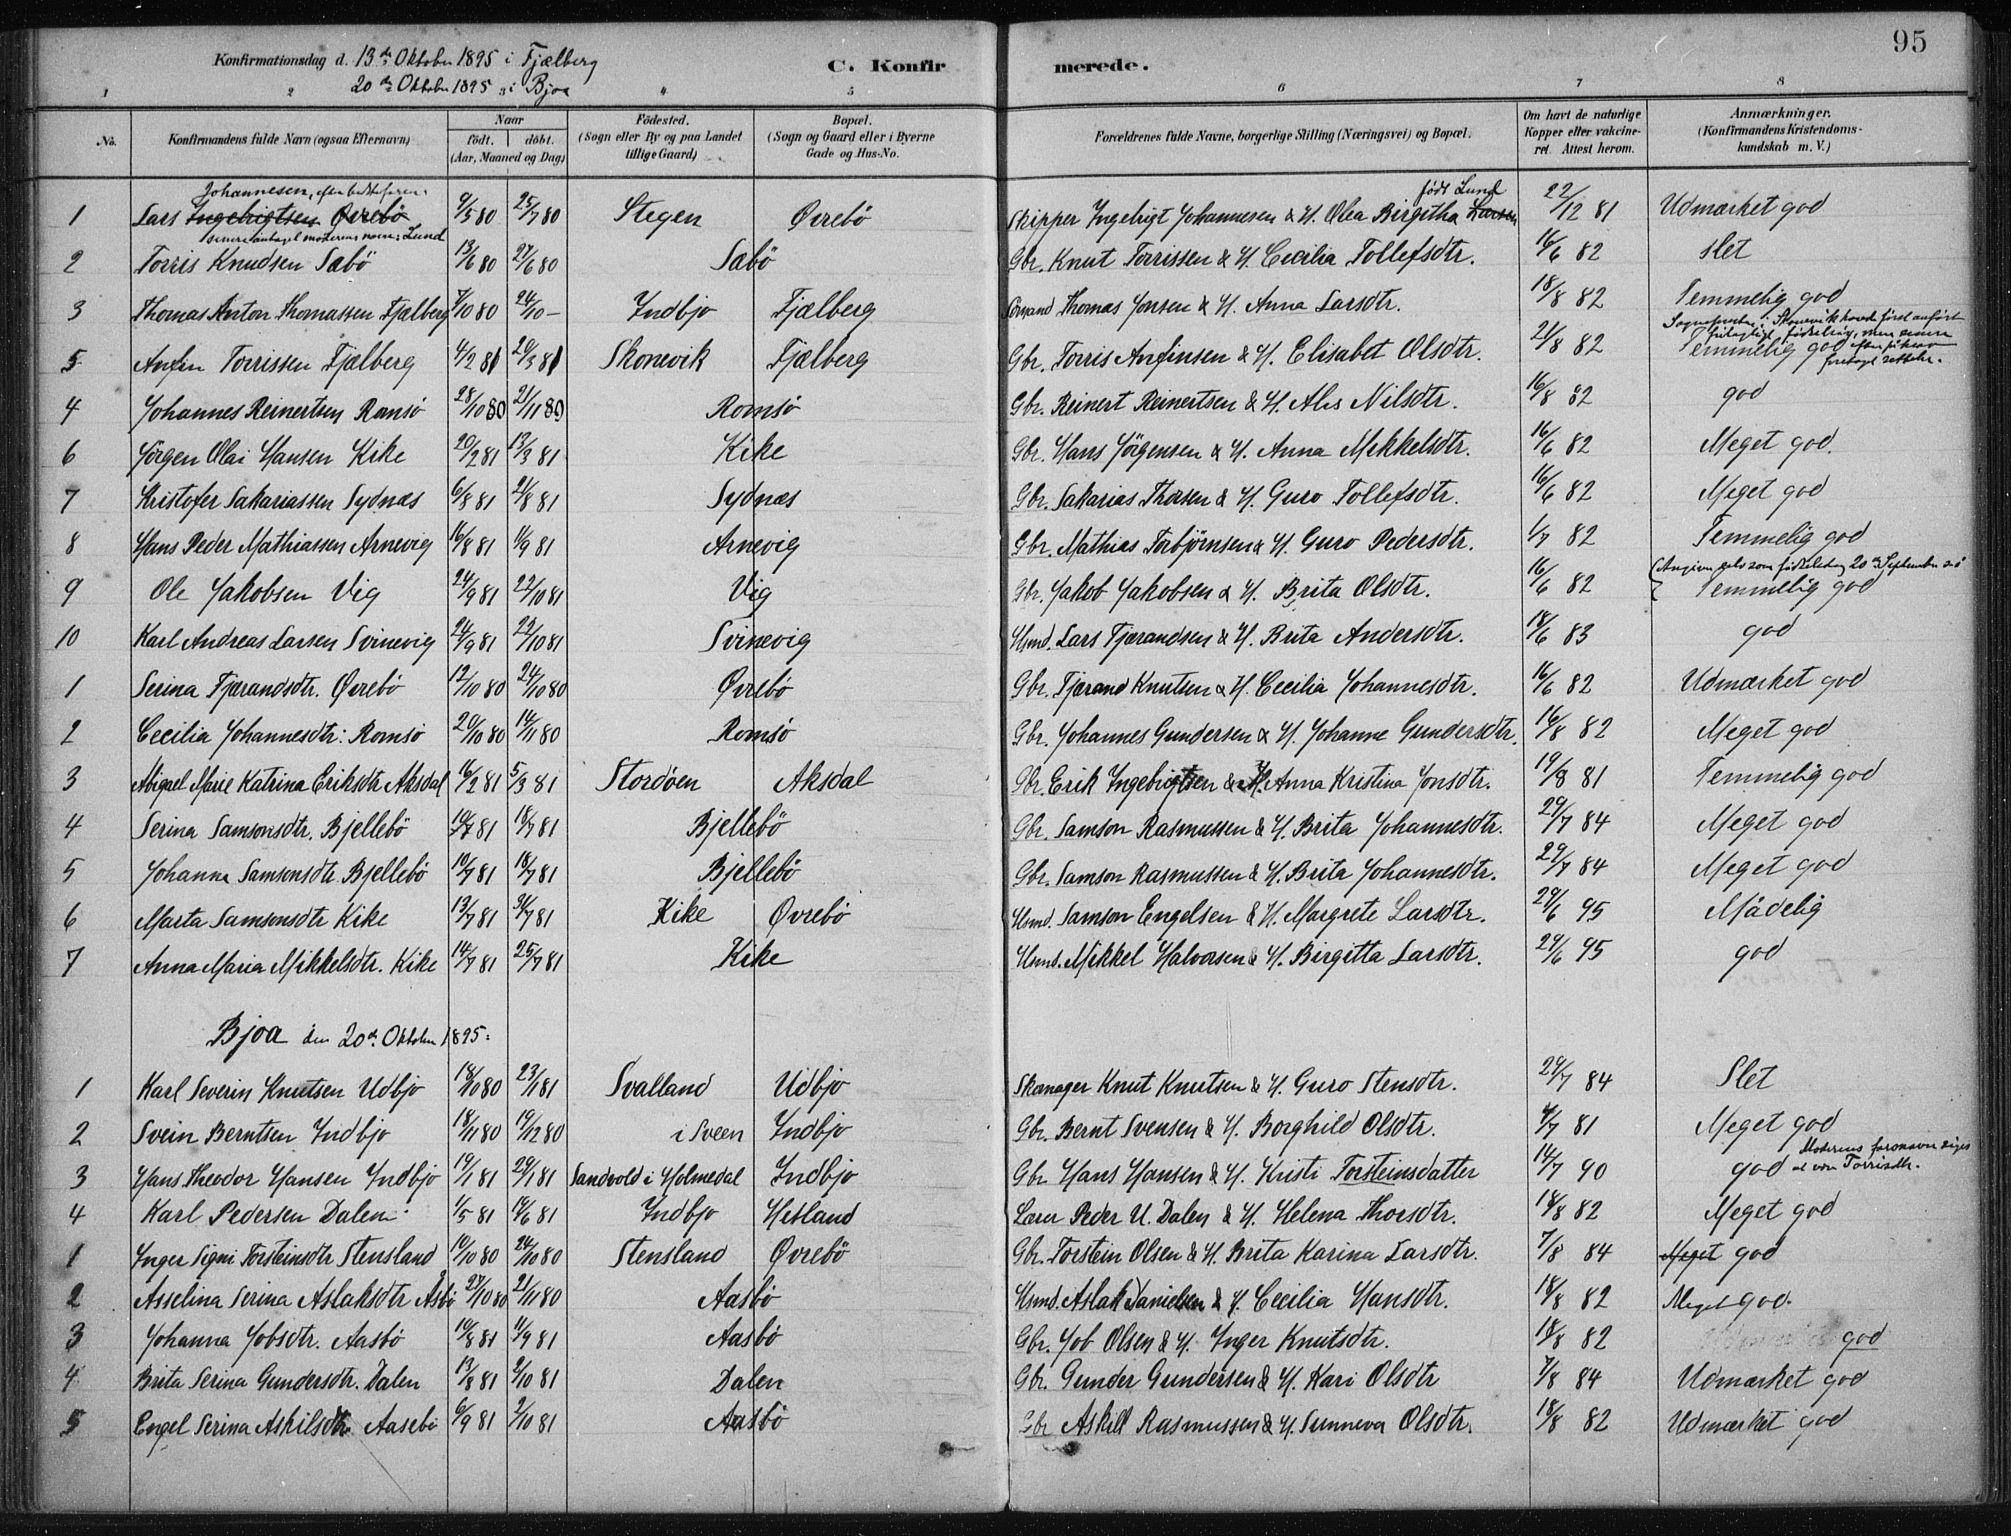 95
Konfirmationsdag d. 13de Oktober 1895 i Fjælberg
20de Oktober 1895 i Bjoa
C. Konfirmerede.
1 2 3 4 5 6 7 8
No. Konfirmandens fulde Navn (ogsaa Efternavn) Naar født. døbt. (Aar, Maaned og Dag) Fødested. (Sogn eller By og paa Landet tillige Gaard) Bopæl. (Sogn og Gaard eller i Byerne Gade og Hus-No. Forældrenes fulde Navne, borgerlige Stilling (Næringsvei) og Bopæl. Om havt de naturlige Kopper eller vakcineret. Attest herom. Anmærkninger. (Konfirmandens Kristendomskundskab m. V.)
Johannesen, efter bedstefaren
1 Lars Ingebrigtsen Øvrebø 9/5 80 25/7 80 Stegen Øvrebø Skipper Ingebrigt Johannesen & H. Olea Birgitha Larsen født Lund 22/12 81 Udmærket god
senere antaget moderens navn: Lund
2 Torris Knudsen Sæbö 13/6 80 27/6 80 Sæbö Gbr. Knut Torrissen & H. Cecilia Tollefsdtr. 16/6 82 slet
3 Thomas Anton Thomassen Fjælberg 7/10 80 24/10 — Indbjo Fjælberg Thomas Jonsen & H. Anna Larsdtr. 18/8 82 Temmelig god
5 Anfin Torrissen Fjælberg 4/2 81 20/3 81 Skonevik Fjælberg Gbr. Torris Anfinsen & H. Elisabet Olsdtr. 21/8 82 Temmelig god
4 Johannes Reinertsen Romsö 28/10 80 21/11 80 Romsö Gbr. Reinert Reinertsen & H. Alis Nilsdtr. 16/8 82 god
6 Jörgen Olai Hansen Kike 20/2 81 13/3 81 Kike Gbr. Hans Jörgensen & H. Anna Mikkelsdtr. 16/6 82 Meget god.
7 Kristofer Sakariassen Sydnæs 6/8 81 21/8 81 Sydnæs Gbr. Sakarias Thorsen & H. Guro Tollefsdtr. 16/6 82 Meget god
8 Hans Peder Mathiassen Arnevig 16/8 81 11/9 81 Arnevig Gbr. Mathias Torbjörnsen & H. Guro Pedersdtr. 1/7 82 Temmelig god
9 Ole Jakobsen Vig 24/9 81 22/10 81 Vig Gbr. Jakob Jakobsen & H. Brita Olsdtr. 16/6 82 Temmelig god
10 Karl Andreas Larsen Svinevig 24/9 81 22/10 81 Svinevig Husmd. Lars Tjærandsen & H. Brita Andersdtr. 18/6 83 god
1 Serina Tjærandsdtr. Øvrebö 12/10 80 24/10 80 Øvrebö Gbr. Tjærand Knutsen & H. Cecilia Johannesdtr. 16/6 82 Udmærket god
2 Cecilia Johannesdtr: Romsö 20/10 80 14/11 80 Romsö Gbr. Johannes Gundersen & H. Johanne Gundersdtr. 16/8 82 Meget god
3 Abigael Marie Katrina Eriksdtr Aksdal 16/2 81 5/3 81 Stordöen Aksdal Gbr. Erik Ingebrigtsen & H. Anna Kristina Jonsdtr. 19/8 81 Temmelig god
4 Serina Samsonsdtr. Bjellebö 10/7 81 18/7 81 Bjellebö Gbr. Samson Rasmussen & H. Brita Johannesdtr. 29/7 84 Meget god
5 Johanna Samsonsdtr Bjellebö 10/7 81 18/7 81 Bjellebö Gbr. Samson Rasmussen & H. Brita Johannesdtr. 29/7 84 Meget god
6 Marta Samsonsdtr Kike 13/7 81 31/7 81 Kike Øvrebö Husmd. Samson Engelsen & H. Margrete Larsdtr. 29/6 95 Mådelig
7 Anna Maria Mikkelsdtr. Kike 14/7 81 25/7 81 Kike Husmd. Mikkel Halvorsen & H. Birgitta Larsdtr. 29/6 95 god
Bjoa den 20de Oktober 1895:
1 Karl Severin Knutsen Udbjo 18/10 80 23/1 81 Svalland Udbjo Skomager Knut Knutsen & H. Guro Stensdtr. 29/7 84 Slet
2 Svein Berntsen Indbjo 18/11 80 19/12 80 i Sveen Indbjo Gbr. Bernt Svensen & H. Borghild Olsdtr. 4/7 81 Meget god
3 Hans Theodor Hansen Indbjo 19/1 81 29/1 81 Sandvold i Holmedal Indbjo Gbr Hans Hansen & H. Kristi Torsteinsdatter 14/7 90 god Moderens farsnavn siges at være Torrisdtr.
4 Karl Pedersen Dalen 1/5 81 19/6 81 Indbjo Hetland Lærer Peder U. Dalen & H. Helena Thorsdtr. 18/8 82 Meget god
1 Inger Signi Torsteinsdtr Stensland 10/10 80 24/10 80 Stensland Øvrebö Gbr. Torstein Olsen & H. Brita Karina Larsdtr. 7/8 84 Meget god
2 Asselina Serina Aslaksdtr Åsbö 27/10 80 21/11 80 Aasbö Husmd. Aslak Danielsen & H. Cecilia Hansdtr. 18/8 82 Meget god.
3 Johanna Jobsdtr. Aasbö 19/8 81 11/9 81 Aasbö Gbr. Job Olsen & H. Inger Knutsdtr. 18/8 82 god
4 Brita Serina Gundersdtr. Dalen 13/8 81 2/10 81 Dalen Gbr. Gunder Gundersen & H. Kari Olsdtr 7/8 84 Udmærket god
5 Engel Serina Askilsdtr Aasebö 6/9 81 2/10 81 Aasbö Gbr Askill Rasmussen & H. Sunneva Olsdtr. 18/8 82 Udmærket god